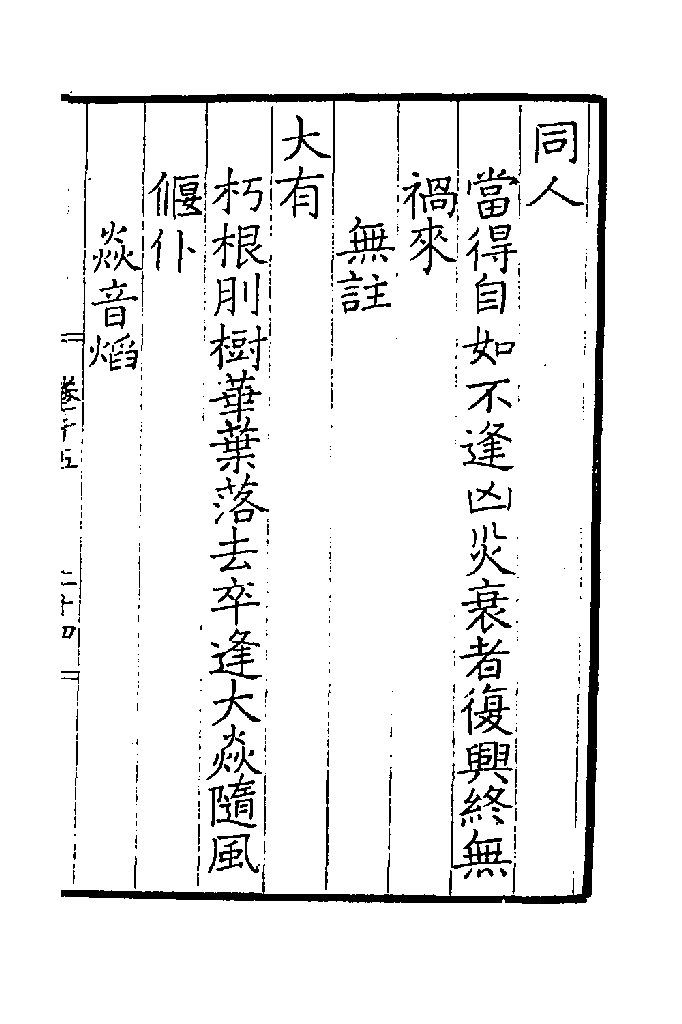 同人
當得自如不逢凶災衰者復興終無
禍來
無註
大有
朽根刖樹華葉落去卒逢大焱隨風
偃仆
焱音熖
卷十五
二十四